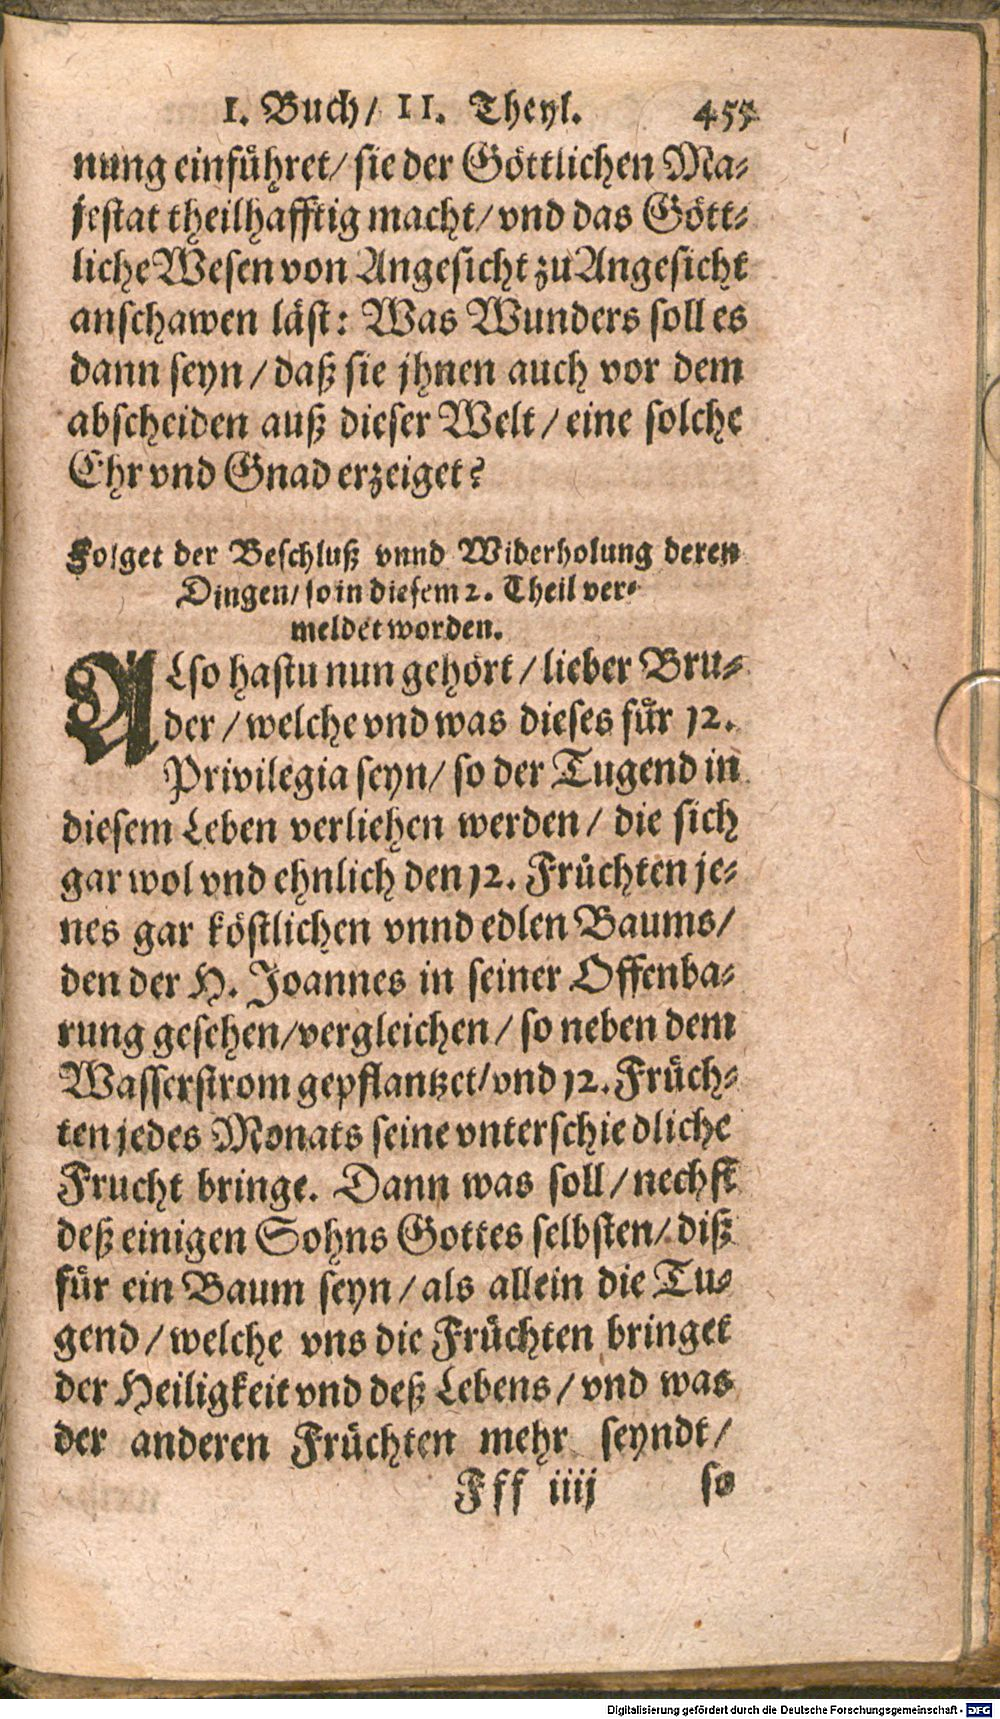 I. Buch/ II. Theyl. 457
nung einfuͤhret/ sie der Goͤttlichen Ma-
jestat theilhafftig macht/ vnd das Goͤtt-
liche Wesen von Angesicht zu Angesicht
anschawen laͤst: Was Wunders soll es
dann seyn/ daß sie jhnen auch vor dem
abscheiden auß dieser Welt/ eine solche
Ehr vnd Gnad erzeiget?
Folget der Beschluß vnnd Widerholung deren
Dingen/ so in diesem 2. Theil ver-
meldet worden.
ALso hastu nun gehoͤrt/ lieber Bru-
der/ welche vnd was dieses fuͤr 12.
Privilegia seyn/ so der Tugend in
diesem Leben verliehen werden/ die sich
gar wol vnd ehnlich den 12. Fruͤchten je-
nes gar koͤstlichen vnnd edlen Baums/
den der H. Joannes in seiner Offenba-
rung gesehen/ vergleichen/ so neben dem
Wasserstrom gepflantzet/ vnd 12. Fruͤch-
ten jedes Monats seine vnterschiedliche
Frucht bringe. Dann was soll/ nechst
deß einigen Sohns Gottes selbsten/ diß
fuͤr ein Baum seyn/ als allein die Tu-
gend/ welche vns die Fruͤchten bringet
der Heiligkeit vnd deß Lebens/ vnd was
der anderen Fruͤchten mehr seyndt/
Fff iiij so
Digitalisierung gefördert durch die Deutsche Forschungsgemeinschaft - DFG